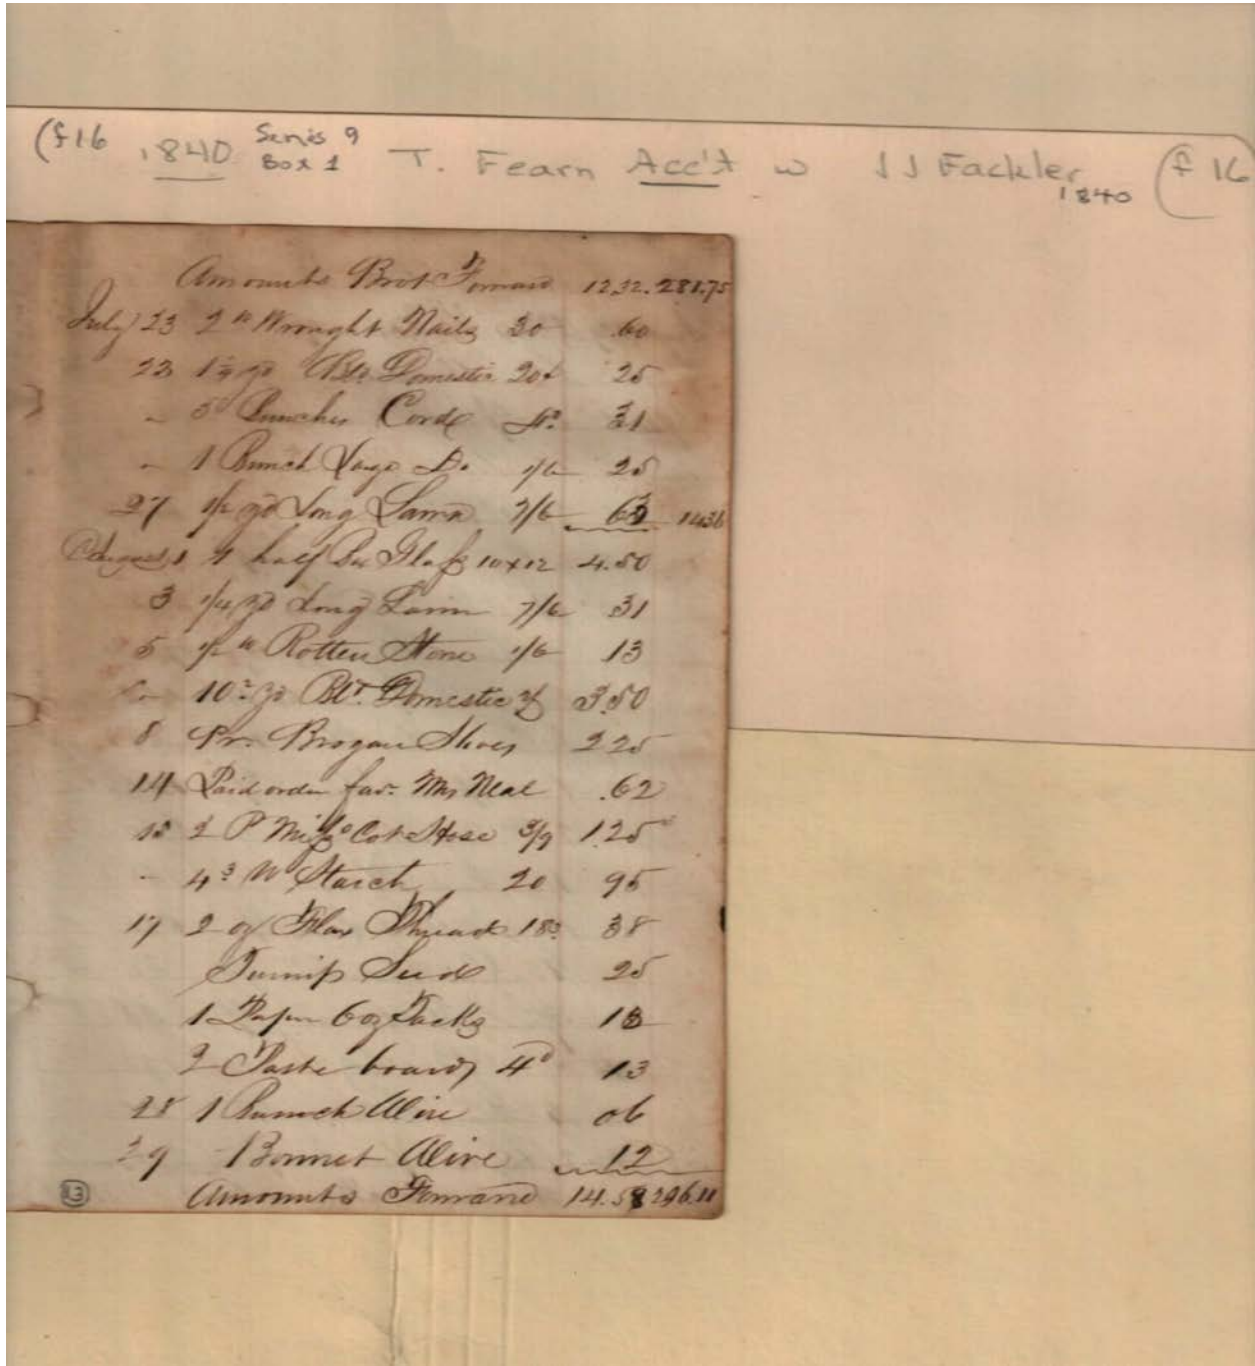 (f16 1840 Series 9 Box 1 T. Fearn Acc't w J J Fackler 1840 (f 16
Amounts Brot Forward 12.32. 281.75
July 23 2 lb Wrought Nails 30 .60
23 yd Blk Domestic 20 25
" 5 Bunches Cord 31
" 1 Bunch Large Do. 1/6 25
27 1/2 yd Long Lawn 7/6 63 14.36
August 1 1 half Box Glass 10x12 4.50
3 1/4 yd Long Lawn 7/6 31
5 1/2 lb Rotten Stone 1/6 13
" 10 yd Domestic 2/ 3.50
8 Pr. Brogan Shoes 2 25
14 Paid order fav. Mrs Neal .62
15 2 P Cot Hose 3/9 1.25
" 4 3 lb Starch 20 95
17 2 oz Flax Thread 18 38
Turnip Seed 25
1 Paper 6 oz Tacks 13
2 Paste boards 4 13
28 1 Bunch Wire 06
29 Bonnet Wire 12
Amounts Forward 14.58 296.11